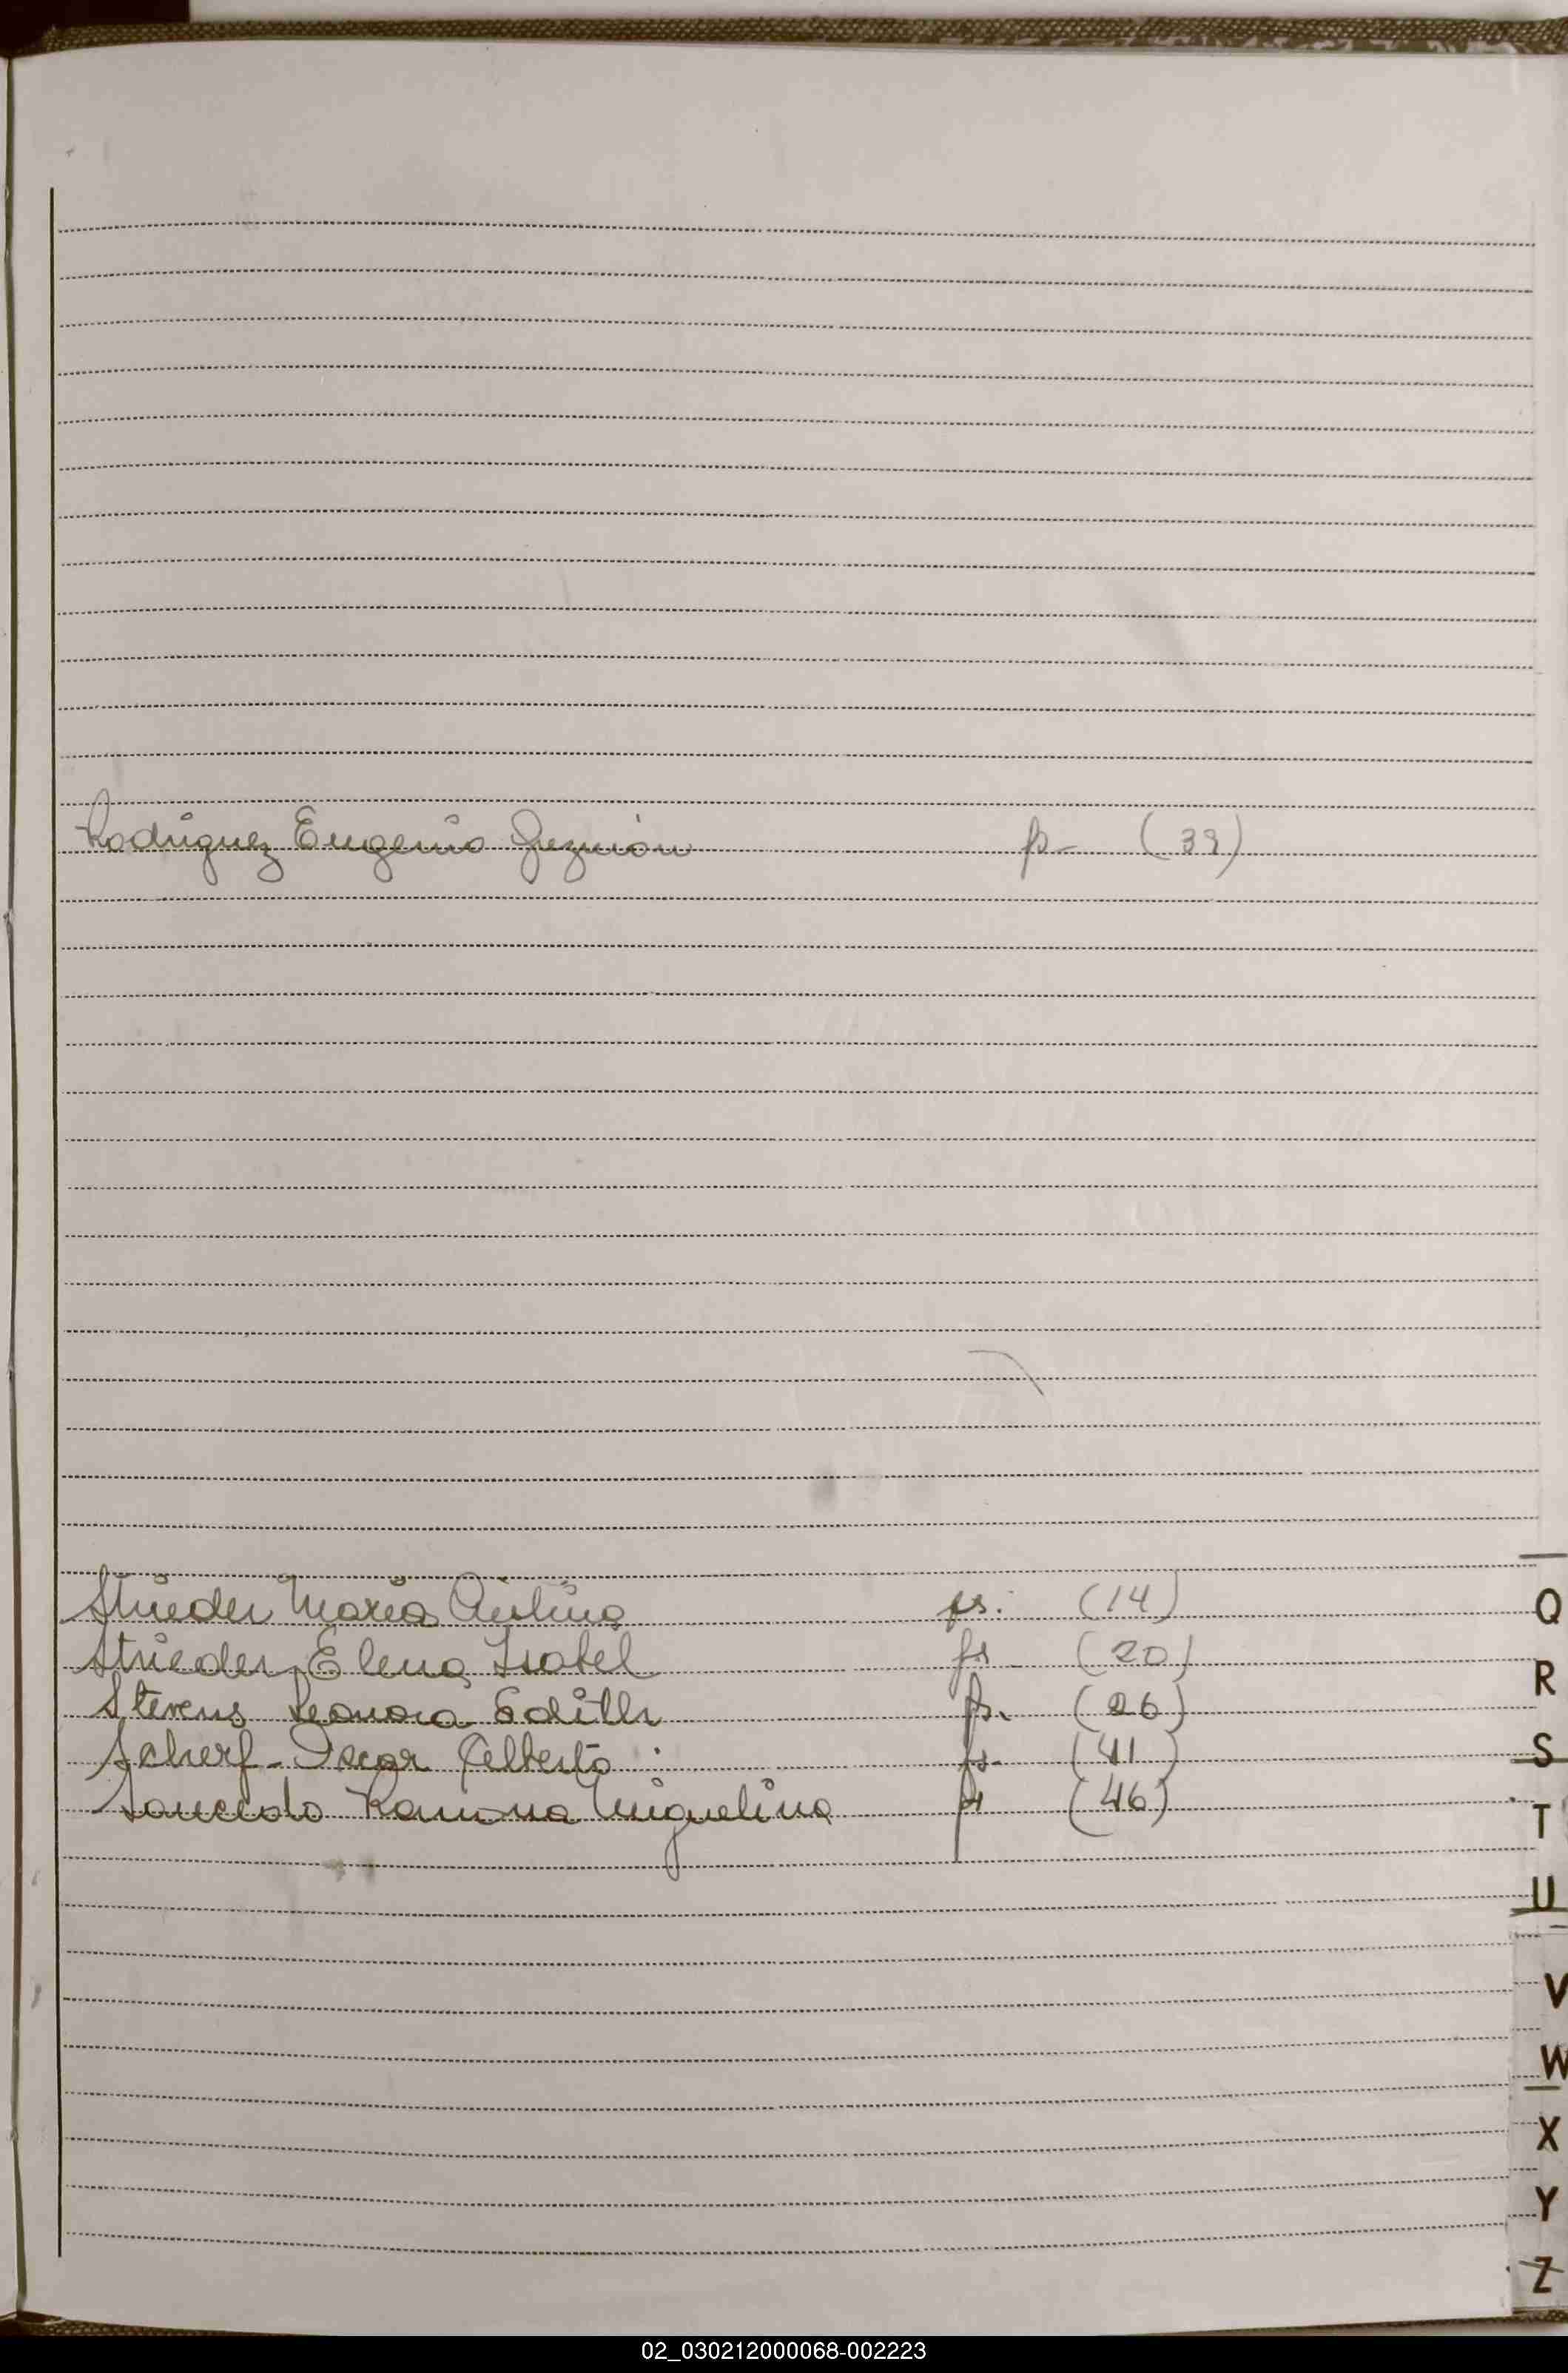 Rodriguez Eugenio Guzmán fs- (39)
Strieder María Cristina fs. (14)
Strieder, Elena Isabel fs (20)
Stevens Leonora Edith fs. (26)
Scherf- Oscar Alberto fs- (41)
Saucedo Ramona Miguelina fs (46)
Q
R
S
T
U
V
W
X
Y
Z
02_030212000068-002223